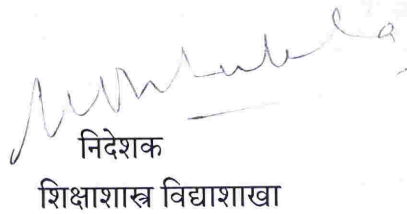 निदेशक
शिक्षाशास्त्र विद्याशाखा